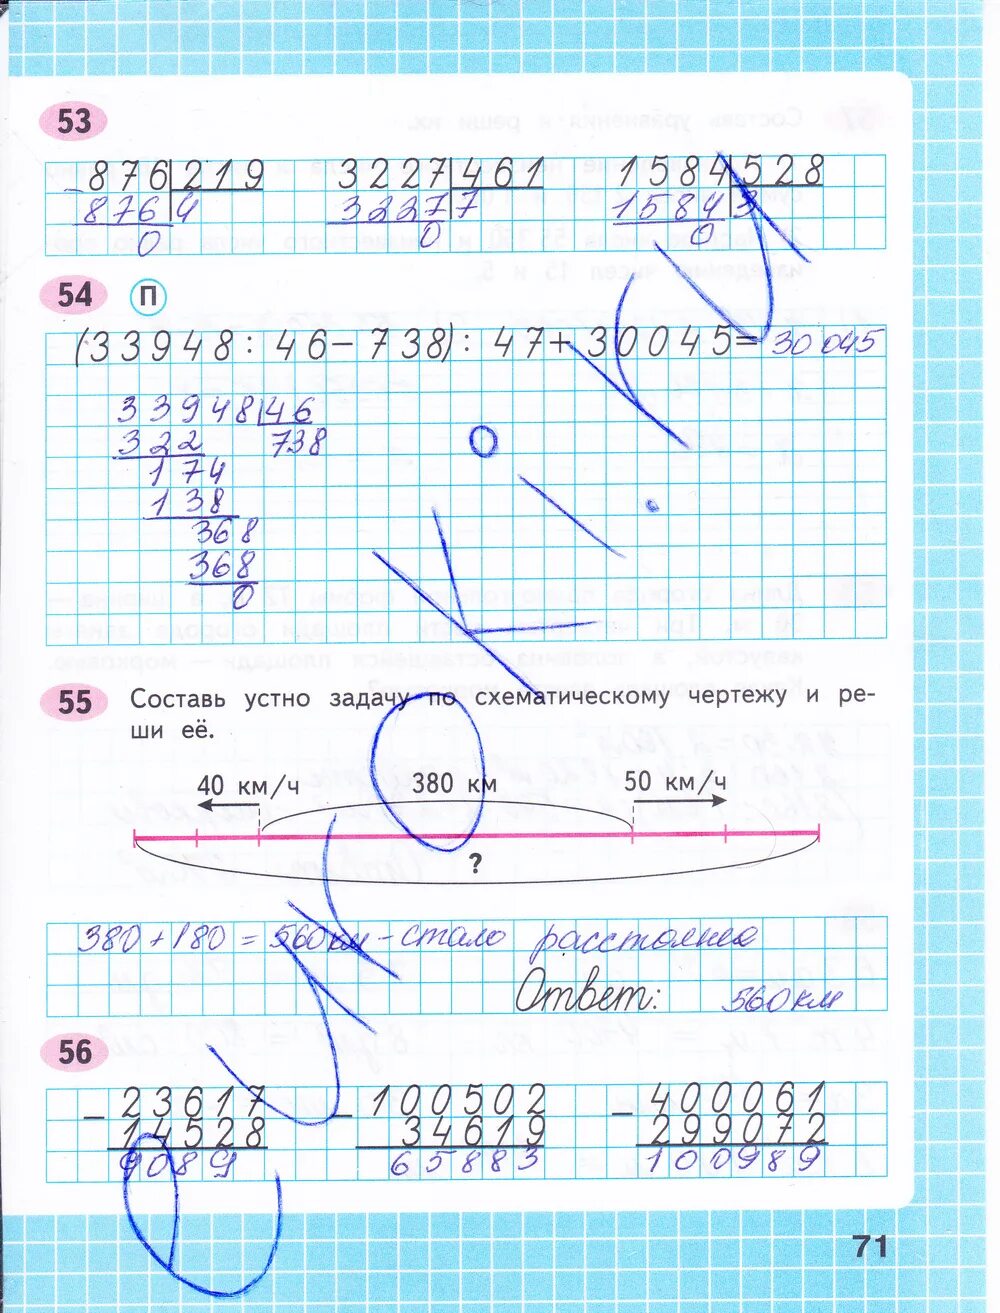 53
876 219
876 4
0
3227 461
3227 7
0
1584 528
1584 3
0
54 П
(33948 : 46 - 738) : 47 + 30045 = 30 045
33948 46
322 738
174
138
368
368
0
55 Составь устно задачу по схематическому чертежу и ре-
ши её.
40 км/ч 380 км 50 км/ч
?
380 + 180 = 560 км - стало расстояние
Ответ: 560 км
56
- 23617
14528
9089
- 100502
34619
65883
- 400061
299072
100989
71